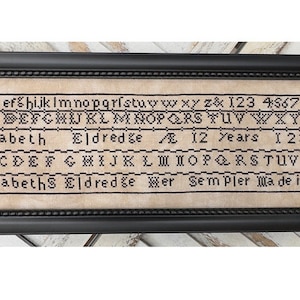 efghijklmnopqrſstuvwxyz& 123 4567
DEFGHIJKLMNOPQRSTUVWXY
abeth Eldredge Æ 12 Years 12
CDEFGHIJKLMNOPQRSTUV
abeths Eldredge Her Sempler Made i